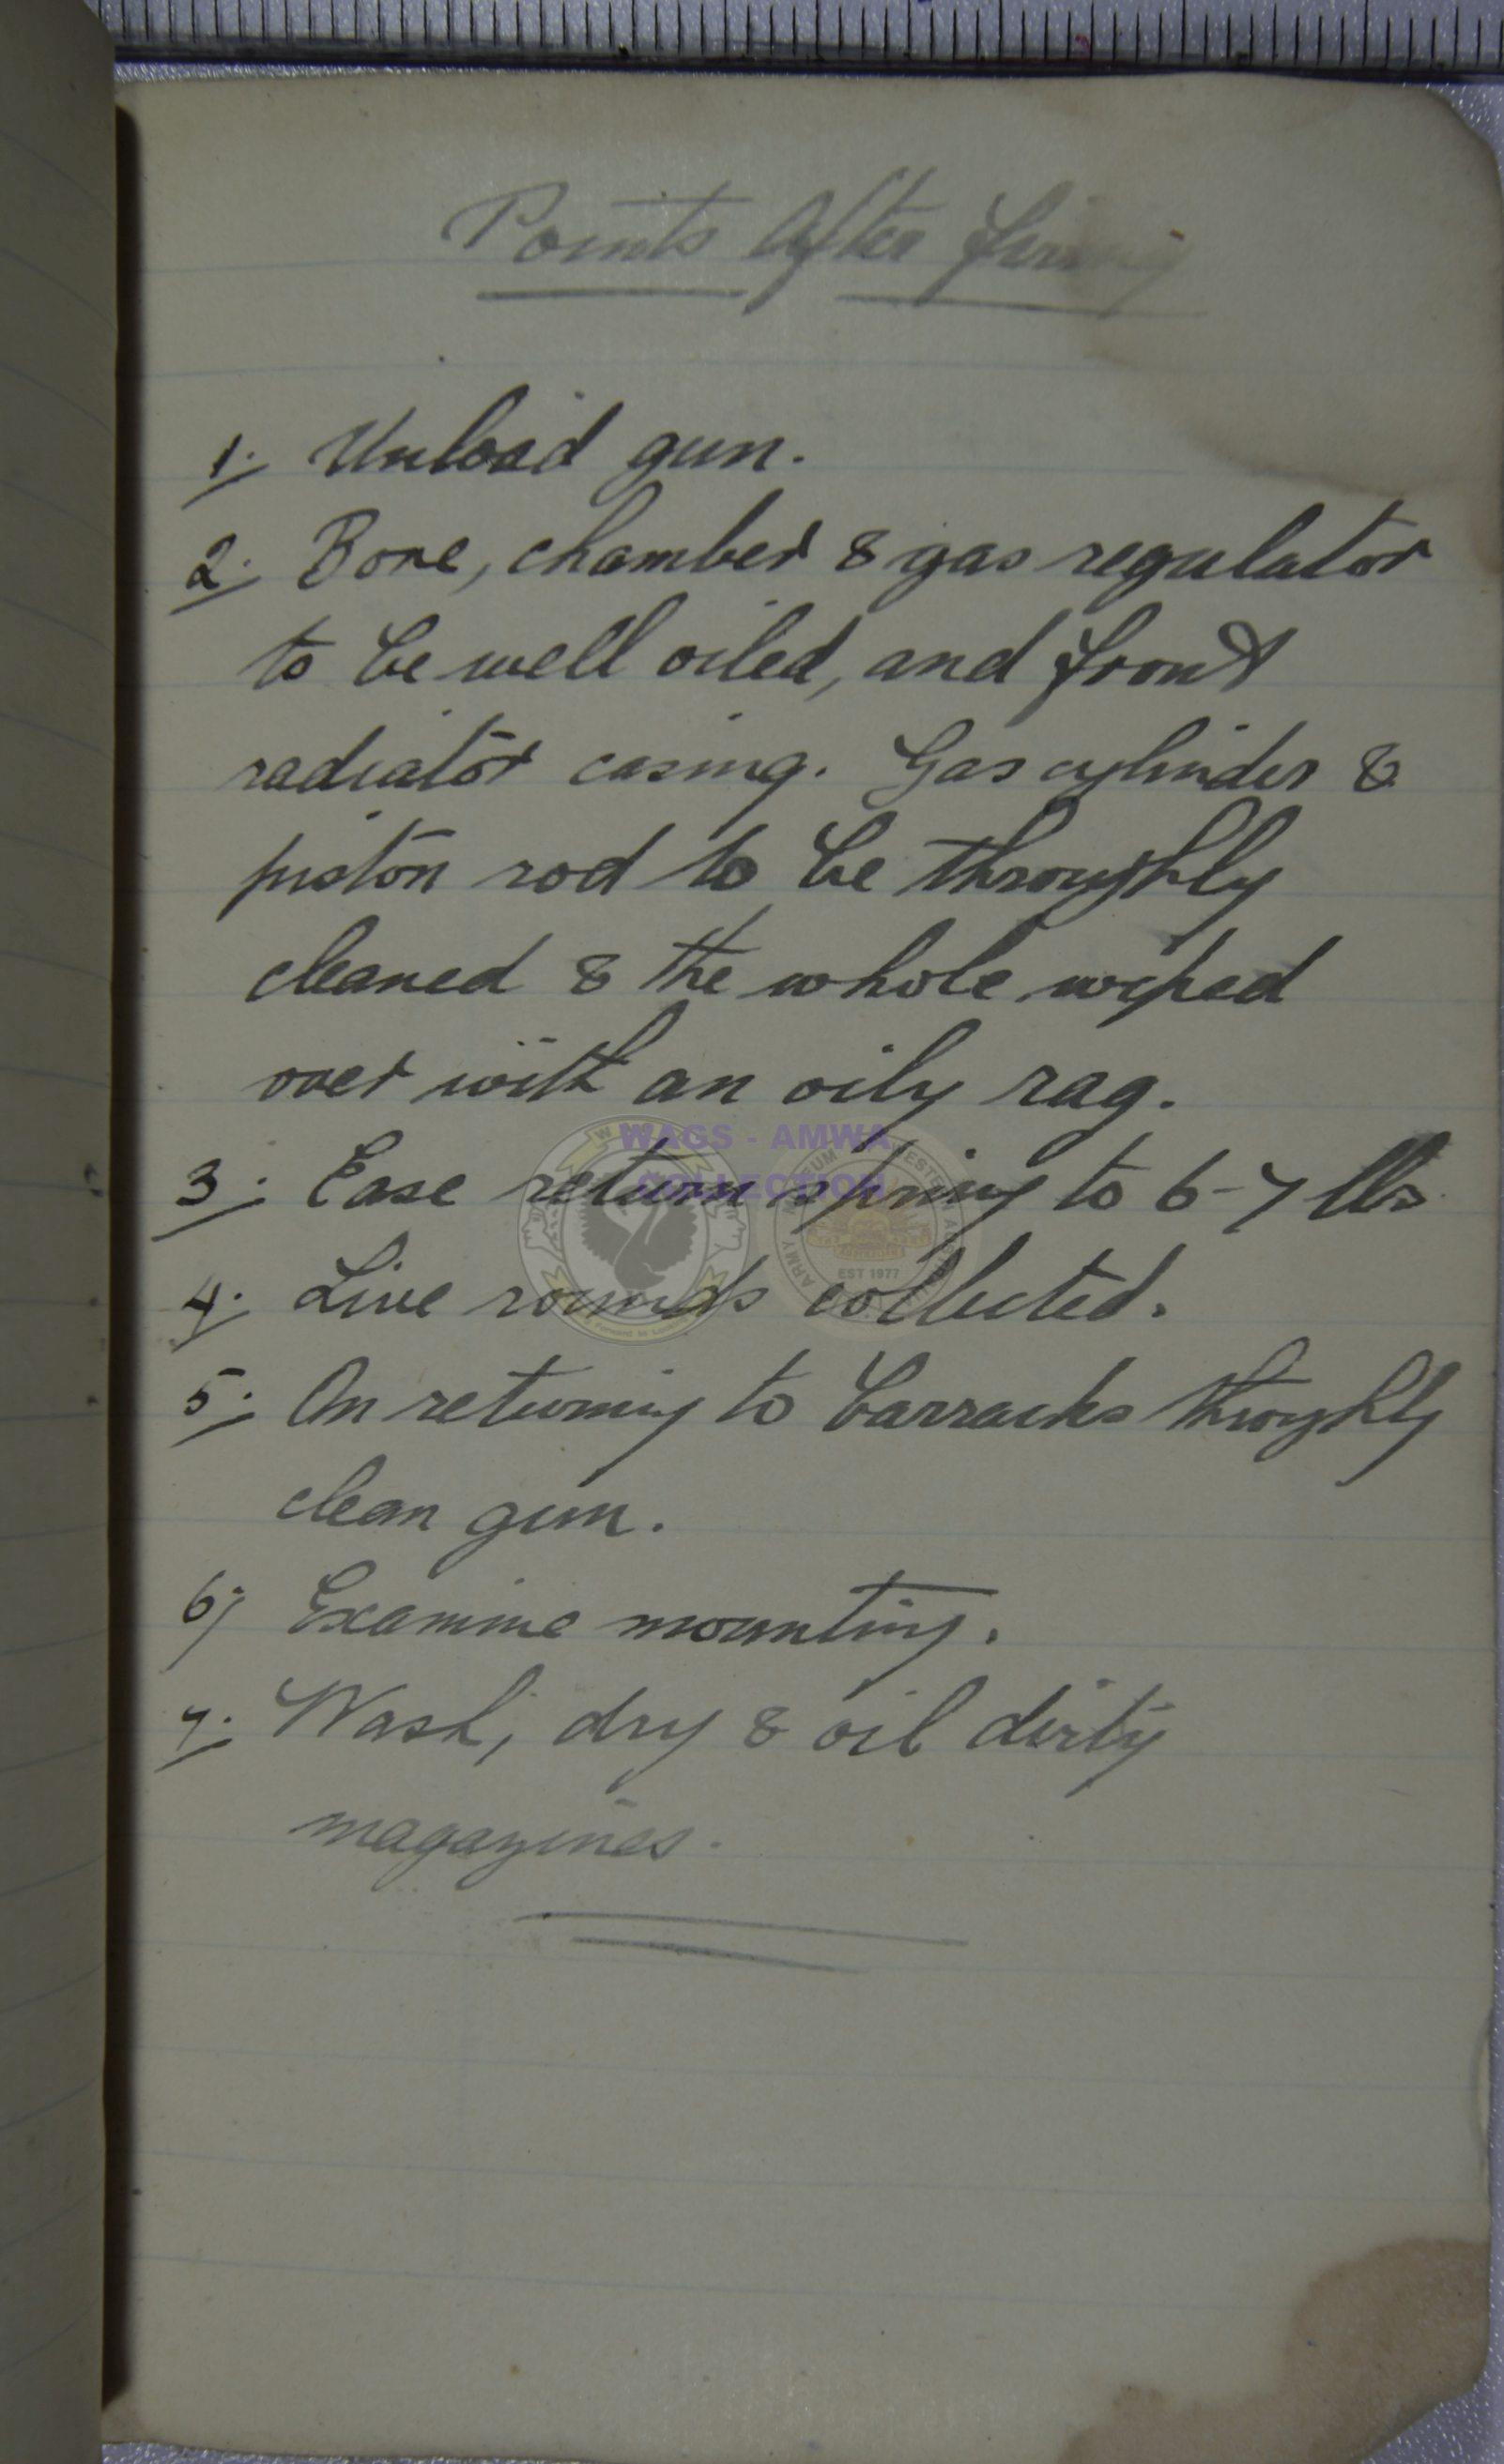 Points After firing
1. Unload gun.
2. Bore, chamber & gas regulator
to be well oiled, and front
radiator casing. Gas cylinder &
piston rod to be throughly
cleaned & the whole wiped
over with an oily rag.
WAGS - AMWA
COLLECTION
3. Ease return spring to 6-7 lbs
EST 1977
4. Live rounds collected.
5. On returning to barracks throghly
clean gun.
6. Examine mounting.
7. Wash, dry & oil dirty
magazines.